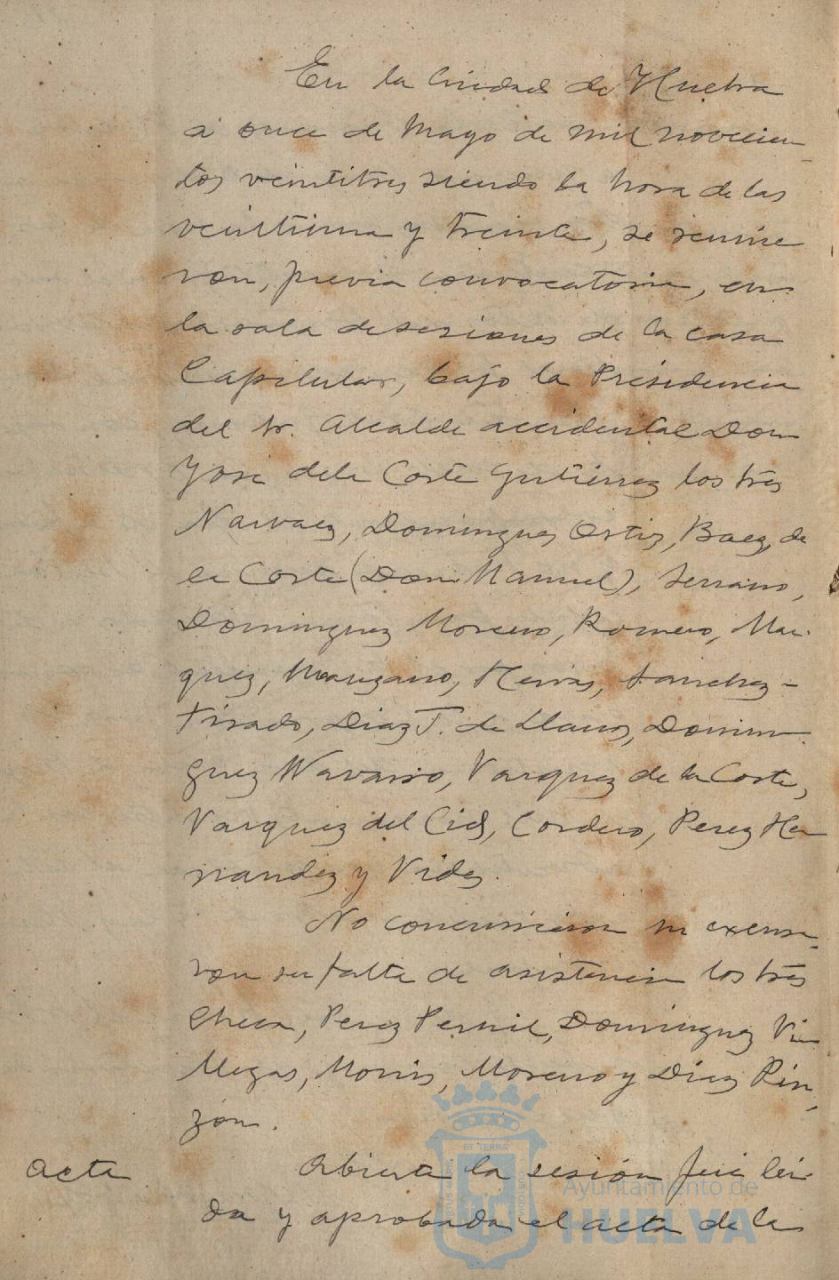 En la Ciudad de Huelva
a once de Mayo de mil novecien-
tos veintitres siendo la hora de las
veintiuna y treinta, se reunie
ron, previa convocatoria, en
la sala de sesiones de la casa
Capitular, bajo la Presidencia
del Sr. Alcalde accidental Don
José de la Corte Gutiérrez los Sres
Narvaez, Dominguez Ortiz, Baez, de
la Corte (Don Manuel), Serrano,
Dominguez Moreno, Romero, Mar-
quez, Manzano, Hervas, Sanchez-
Tirado, Diaz T. de Llano, Domin-
guez Navarro, Vazquez de la Corte,
Vazquez del Cid, Cordero, Perez Her
nandez y Vides.
No concurrieron ni excusa-
ron su falta de asistencia los Sres
Checa, Perez Pernil, Dominguez Vi
llegas, Morris, Moreno y Diaz Pin-
zón.
Acta
Abierta la sesión fue lei-
da y aprobada el acta de la
Ayuntamiento de
HUELVA